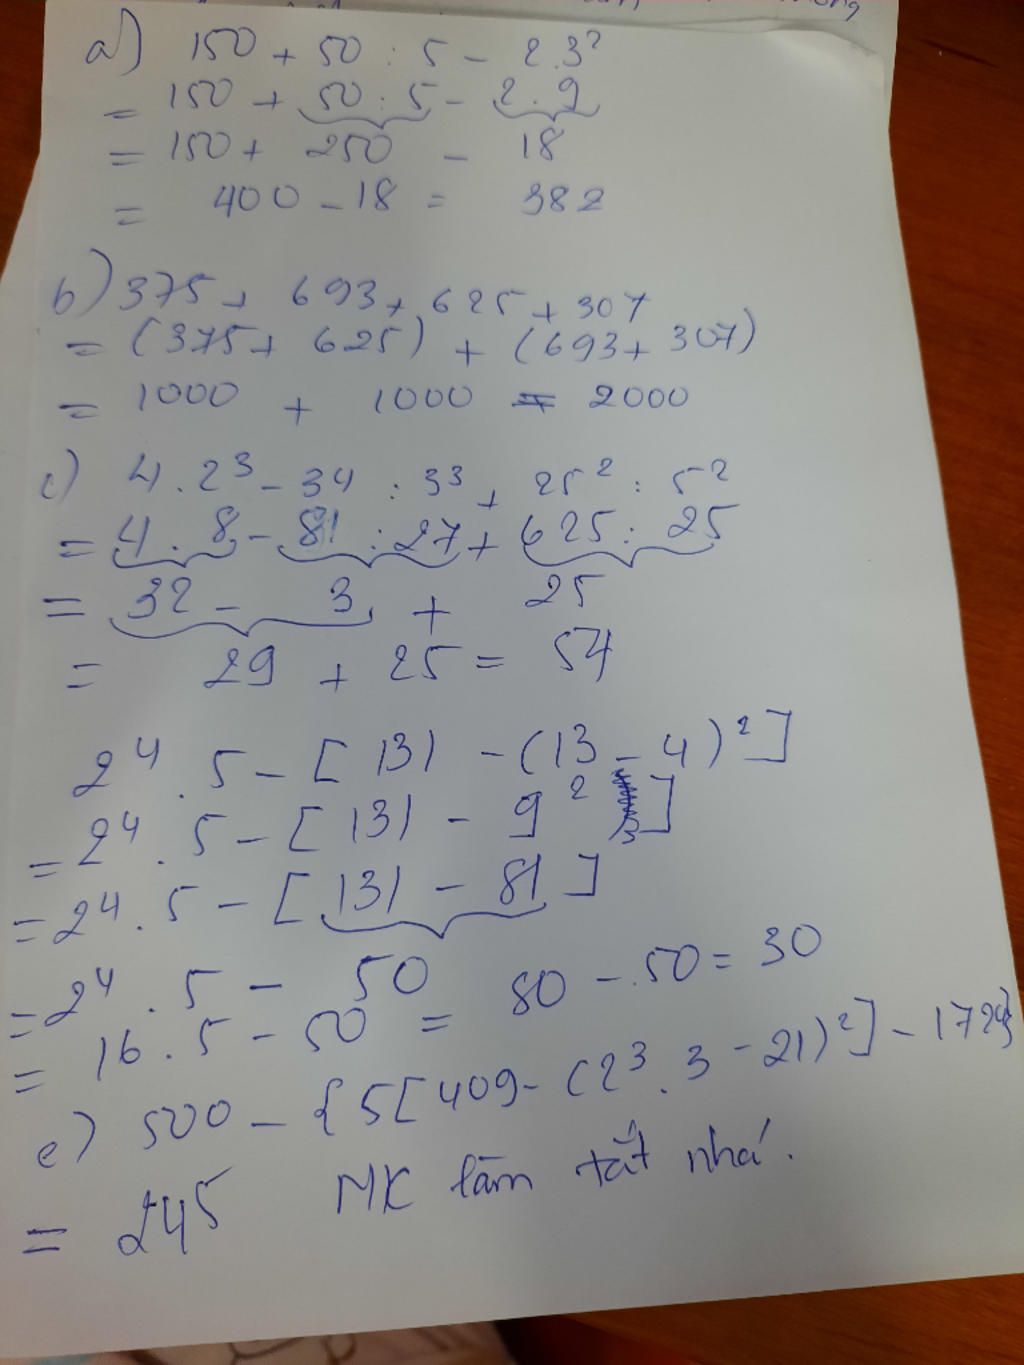 a) 150 + 50 : 5 - 2.3²
= 150 + 50 : 5 - 2.9
= 150 + 250 - 18
= 400 - 18 = 382
b) 375 + 693 + 625 + 307
= (375 + 625) + (693 + 307)
= 1000 + 1000 = 2000
c) 4.2³ - 3⁴ : 3³ + 25² : 5²
= 4.8 - 81 : 27 + 625 : 25
= 32 - 3 + 25
= 29 + 25 = 54
2⁴.5 - [131 - (13 - 4)²]
= 2⁴.5 - [131 - 9²]
= 2⁴.5 - [131 - 81]
= 2⁴.5 - 50
= 16.5 - 50 = 80 - 50 = 30
e) 500 - {5[409 - (2³.3 - 21)²] - 1724}
= 245 MK làm tắt nhá.